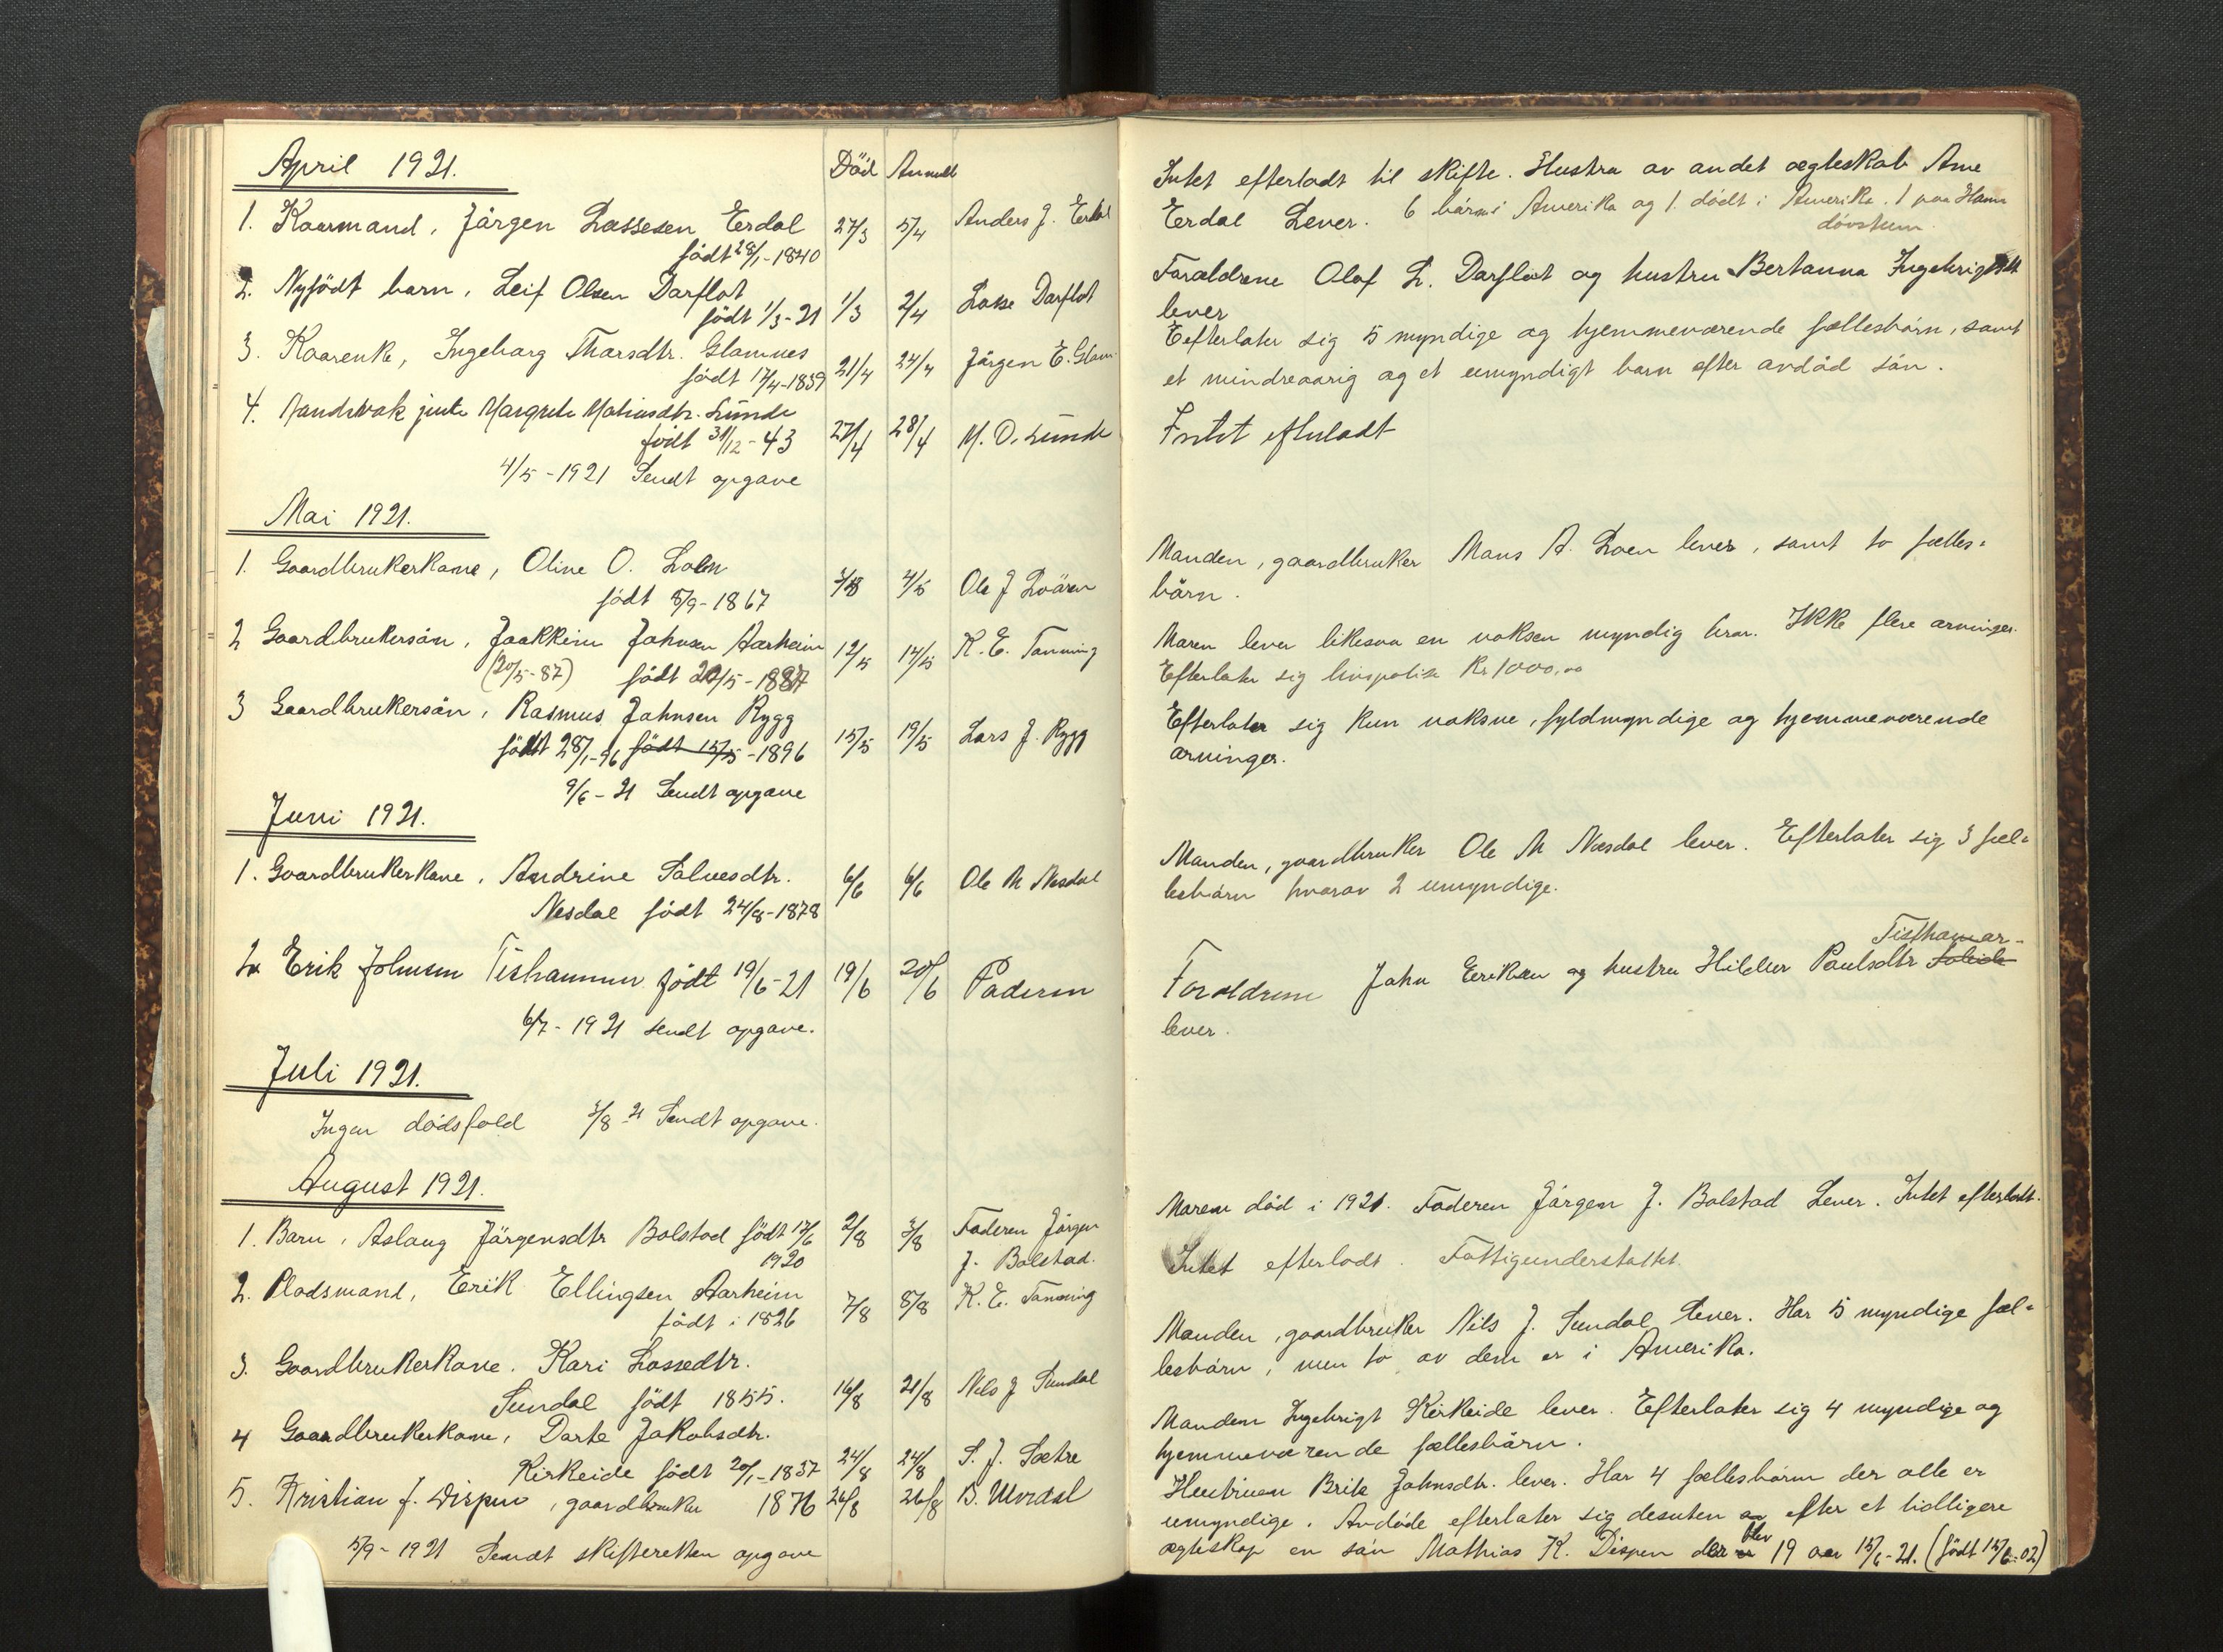 April 1921.
Död Anmeldt
1. Kaarmand, Jörgen Lassesen Erdal 27/3 5/4 Anders J. Erdal
född 28/1-1840
2. Nyfödt barn, Leif Olsen Darflot
födt 1/3-21 1/3 2/4 Lasse Darflot
3. Kaarenke, Ingeborg Thorsdtr. Glomnes
födt 17/4-1839 21/4 24/4 Jörgen E. Glom.
4. jente Margrete Matiasdtr. Sunde
födt 31/12-43 27/4 28/4 M. O. Sunde
4/5-1921 Sendt opgave
Mai 1921.
1. Gaardbrukerkone, Oline O. Loen
födt 5/9-1867 4/5 Ole J Lvären
2 Gaardbrukersön, Joakkim Johnsen Aarheim 12/5 14/5 K. E. Tonning
(20/5-87) födt 20/5-1887
3 Gaardbrukersön, Rasmus Johnsen Rygg
födt 28/1-96 födt 15/5-1896 15/5 19/5 Lars J. Rygg
9/6-21 Sendt opgave
Juni 1921.
1. Gaardbrukerkone, Andrine Salvesdtr. 6/6 6/6 Ole M Nesdal
Nesdal födt 24/8-1878
2. Erik Johnsen Tishammer födt 19/6-21 19/6 20/6 Faderen
6/7-1921 sendt opgave.
Juli 1921.
Ingen dödsfald 3/8-21 Sendt opgave.
August 1921.
1. Barn, Aslaug Jörgensdtr Bolstad födt 17/6 2/8 3/8 Faderen Jörgen
1920 J. Bolstad.
2. Pladsmand, Erik Ellingsen Aarheim
födt i 1826 7/8 8/8 K. E. Tonning
3. Gaardbrukerkone. Kari Lassedtr.
Sundal födt 1855. 16/8 21/8 Nils J Sundal
4 Gaardbrukerkone, Dorte Jakobsdtr.
Kirkeide födt 20/1-1837 24/8 24/8 S. J. Sætre
5. Kristian J. Dispen, gaardbruker 1876 26/8 26/8 B. Utvdal
5/9-1921 Sendt skifteretten opgave
Intet efterladt til skifte. Hustru av andet ægteskab Ane
Erdal Lever. 6 börn i Amerika og 1. dödt i Amerika. 1 paa Hamn
dövstum.
Forældrene Olaf L. Darflot og hustru Bertanna Ingebrigtsdtr
lever
Efterlater sig 5 myndige og hjemmeværende fællesbörn, samt
et mindreaarig og et umyndigt barn efter avdöd sön.
Intet efterladt
Manden, gaardbruker Mons A. Loen lever, samt to fælles-
börn.
Moren lever likesaa en voksen myndig bror. Ikke flere arvinger.
Efterlater sig livspolise Kr 1000,00
Efterlater sig kun voksne, fyldmyndige og hjemmeværende
arvinger.
Manden, gaardbruker Ole M Nesdal lever. Efterlater sig 3 fæl-
lesbörn hvorav 2 umyndige.
Tisthamar-
Forældrene John Eriksen og hustru Hilder Paulsdtr
lever.
Moren död i 1921. Faderen Jörgen J. Bolstad Lever. Intet efterladt.
Intet efterladt. Fattigunderstöttet.
Manden, gaardbruker Nils J. Sundal lever. Har 5 myndige fæl-
lesbörn, men to av dem er i Amerika.
Manden Ingebrigt Kirkeide lever. Efterlater sig 4 myndige og
hjemmeværende fællesbörn.
Hustruen Brite Johnsdtr. lever. Har 4 fællesbörn der alle er
umyndige. Avdöde efterlater sig desuten efter et tidligere
ægteskap en sön Mathias K. Dispen der blev 19 aar 15/6-21. (födt 15/6-02)